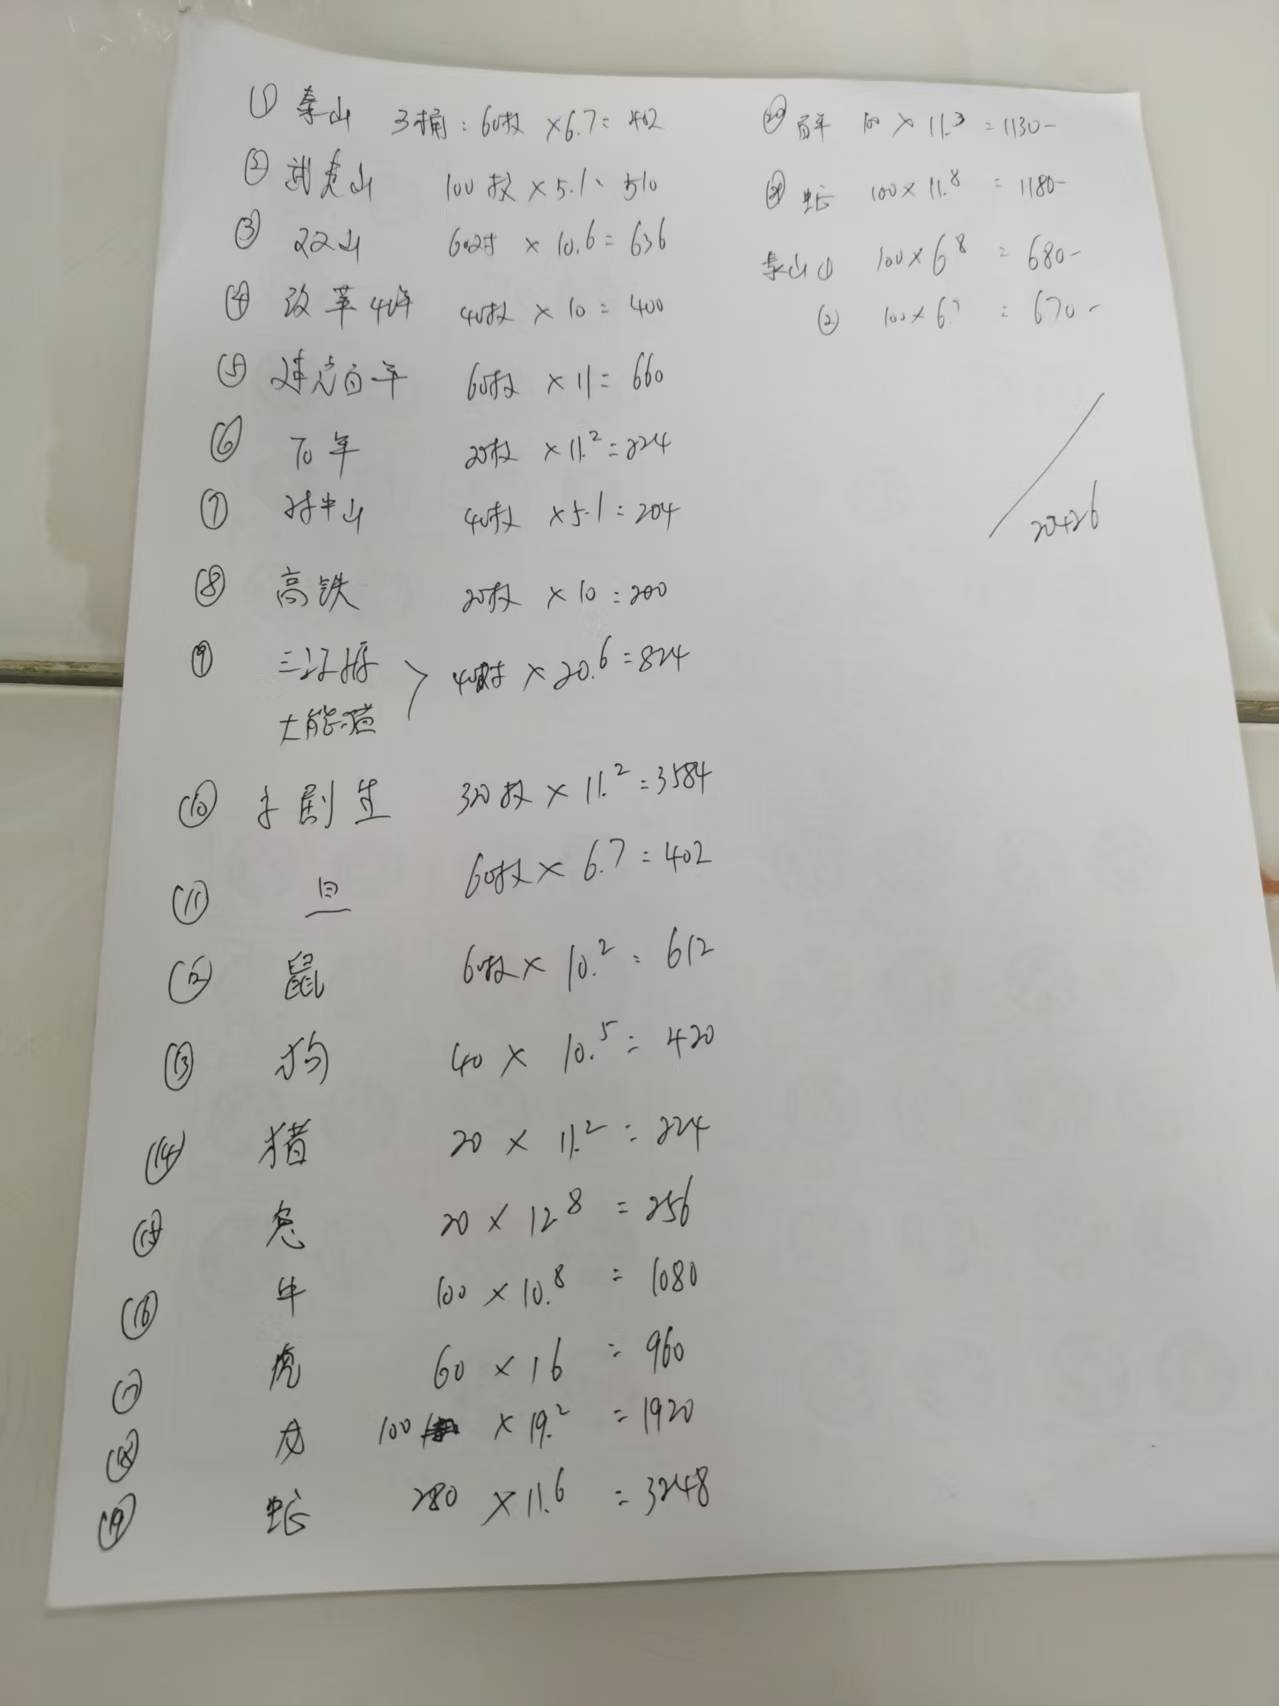 ① 泰山 3桶：60枚 ×6.7=402
② 武夷山 100枚×5.1、510
③ 双山 60对 × 10.6=636
④ 改革40年 40枚 × 10=400
⑤ 建党百年 60枚 ×11=660
⑥ 70年 20枚 ×11.2=224
⑦ 山 40枚 ×5.1=204
⑧ 高铁 20枚 ×10=200
⑨ 三江源
大熊猫 > 40对 ×20.6=824
⑩ 京剧生 320枚 × 11.2=3584
⑪ 旦 60枚× 6.7=402
⑫ 鼠 60枚× 10.2=612
⑬ 狗 40 × 10.5=420
⑭ 猪 20 × 11.2=224
⑮ 兔 20 × 12.8=256
⑯ 牛 100 ×10.8=1080
⑰ 虎 60 ×16=960
⑱ 龙 100 ×19.2=1920
⑲ 蛇 280 ×11.6=3248
⑳ ×11.3=1130-
㉑ 蛇 100×11.8=1180-
泰山① 100×6.8=680-
② 100×6.7=670-
20426